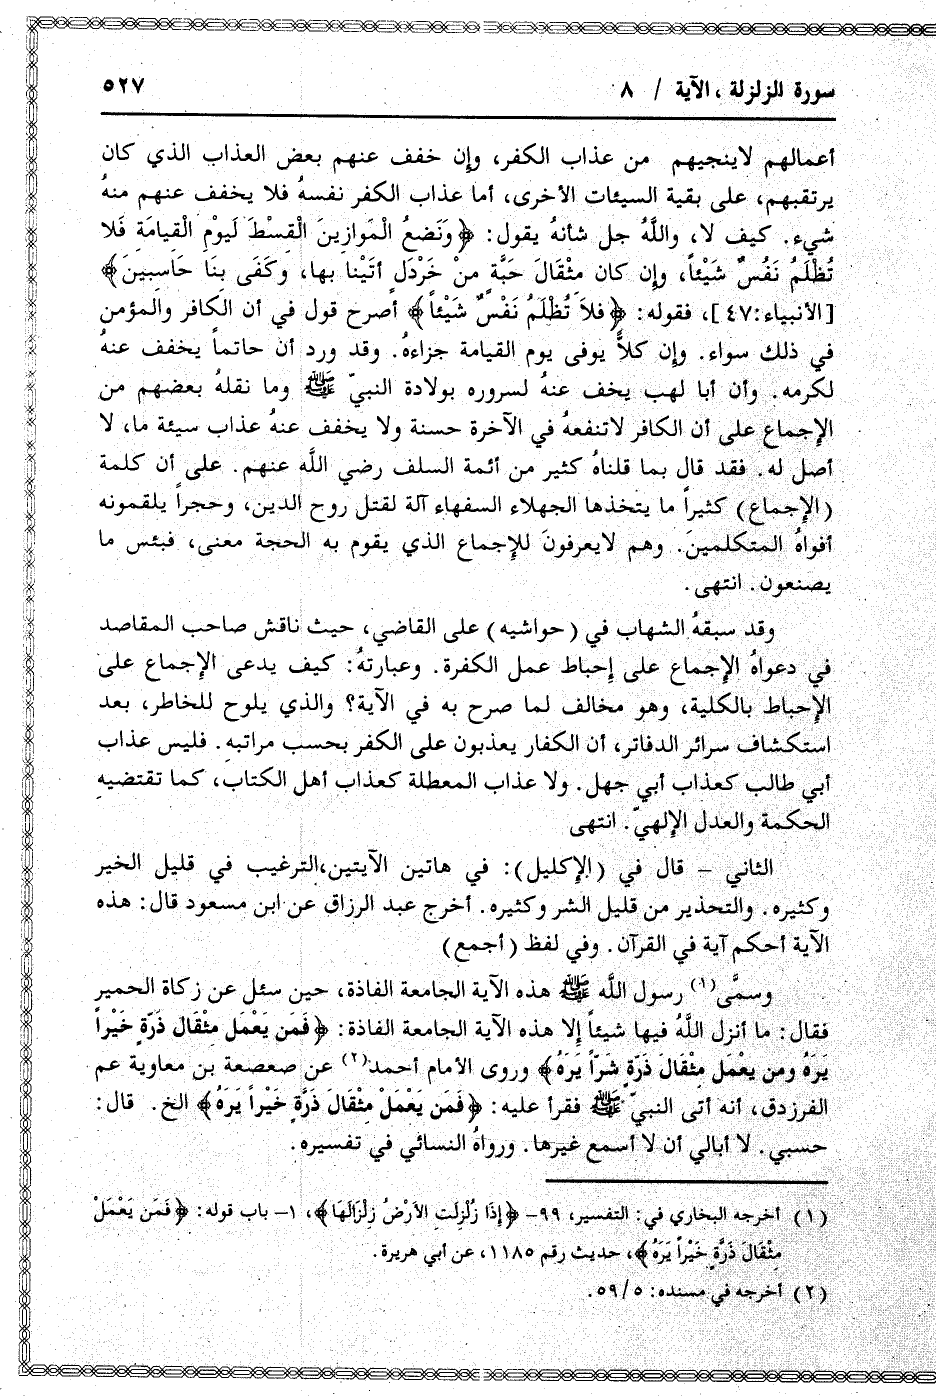 سورة الزلزلة ، الآية / ٨
٥٢٧
أعمالهم لاينجيهم من عذاب الكفر، وإن خفف عنهم بعض العذاب الذي كان
يرتقبهم، على بقية السيئات الأخرى، أما عذاب الكفر نفسهُ فلا يخفف عنهم منهُ
شيء. كيف لا، واللَّهُ جل شانهُ يقول: ﴿وَنَضعُ الْمَوازِينَ الْقِسْطَ لَيوْمِ الْقيامَةِ فَلا
تُظْلَمُ نَفُسٌ شَيْئاً، وإن كان مثْقَالَ حَبَّةٍ منْ خَرْدَلٍ أتَيْنا بها، وكَفَى بنَا حَاسِبينَ﴾
[الأنبياء:٤٧]، فقوله: ﴿فلاَ تُظْلَمُ نَفْسٌ شَيْئاً﴾ أصرح قول في أن الكافر والمؤمن
في ذلك سواء. وإن كلاًّ يوفى يوم القيامة جزاءهُ. وقد ورد أن حاتماً يخفف عنهُ
لكرمه. وأن أبا لهب يخف عنهُ لسروره بولادة النبيّ ﷺ وما نقلهُ بعضهم من
الإجماع على أن الكافر لاتنفعهُ في الآخرة حسنة ولا يخفف عنهُ عذاب سيئة ما، لا
أصل له. فقد قال بما قلناهُ كثير من أئمة السلف رضي اللَّه عنهم. على أن كلمة
(الإجماع) كثيراً ما يتخذها الجهلاء السفهاء آلة لقتل روح الدين، وحجراً يلقمونه
أفواهُ المتكلمينَ. وهم لايعرفونَ للإجماع الذي يقوم به الحجة معنى، فبئس ما
يصنعون. انتهى.
وقد سبقهُ الشهاب في (حواشيه) على القاضي، حيث ناقش صاحب المقاصد
في دعواهُ الإجماع على إحباط عمل الكفرة. وعبارتهُ: كيف يدعى الإجماع على
الإحباط بالكلية، وهو مخالف لما صرح به في الآية؟ والذي يلوح للخاطر، بعد
استكشاف سرائر الدفاتر، أن الكفار يعذبون على الكفر بحسب مراتبه. فليس عذاب
أبي طالب كعذاب أبي جهل. ولا عذاب المعطلة كعذاب أهل الكتاب، كما تقتضيهِ
الحكمة والعدل الإلهيّ. انتهى
الثاني – قال في (الإكليل): في هاتين الآيتين،الترغيب في قليل الخير
وكثيره. والتحذير من قليل الشر وكثيره. أخرج عبد الرزاق عن ابن مسعود قال: هذه
الآية أحكم آية في القرآن. وفي لفظ (أجمع)
وسمَّى(١) رسول اللَّه ﷺ هذه الآية الجامعة الفاذة، حين سئل عن زكاة الحمير
فقال: ما أنزل اللَّهُ فيها شيئاً إلا هذه الآية الجامعة الفاذة: ﴿فَمَن يَعْمَل مِثْقَالَ ذَرّةٍ خَيْراً
يَرَهُ ومن يعْمَل مِثْقَالَ ذَرّةٍ شَرّاً يَرَهُ﴾ وروى الأمام أحمد(٢) عن صعصعة بن معاوية عم
الفرزدق، أنه أتى النبيّ ﷺ فقرأ عليه: ﴿فَمَن يَعْمَلْ مِثْقَالَ ذَرَّةٍ خَيْراً يَرَهُ﴾ الخ. قال:
حسبي. لا أبالي أن لا أسمع غيرها. ورواهُ النسائي في تفسيره.
(١) أخرجه البخاري في: التفسير، ٩٩- ﴿إذَا زُلْزِلَتِ الأرْضُ زِلْزَالَهَا﴾، ١- باب قوله: ﴿فَمَن يَعْمَلْ
مِثْقَالَ ذَرَّةٍ خَيْراً يَرَهُ﴾، حديث رقم ١١٨٥، عن أبي هريرة.
(٢) أخرجه في مسنده: ٥٩/٥.